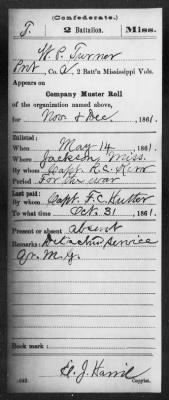 (Confederate.)
T. 2 Battalion. Miss.
W. P. Turner
Pvt, Co. A, 2 Batt'n Mississippi Vols.
Appears on
Company Muster Roll
of the organization named above,
for Nov & Dec, 1861.
Enlisted:
When May 14, 1861.
Where Jackson, Miss.
By whom Capt. R. C. Kerr
Period For the war
Last paid:
By whom Capt. F. C. Hutter
To what time Oct. 31, 1861.
Present or absent absent
Remarks: Detached service
Qr. M. G.
Book mark:
J. Harrie
Copyist.